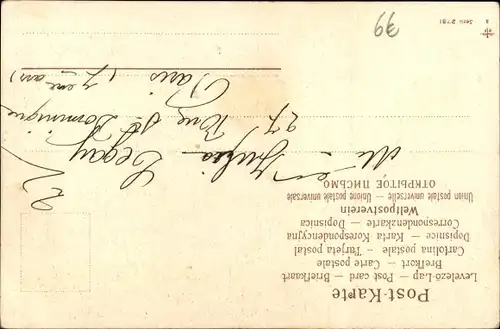 Post-Karte
Levelező-Lap — Post card — Briefkaart
Brefkort — Carte postale
Cartolina postale — Tarjeta postal
Dopisnice — Karta Korespondencyjna
Correspondenzkarte — Dopisnica
Weltpostverein
Union postale universelle — Unione postale universale
ОТКРЫТОЕ ПИСЬМО
Legay
27 Rue St Dominique
Paris (7eme arr)
Serie 2781
99